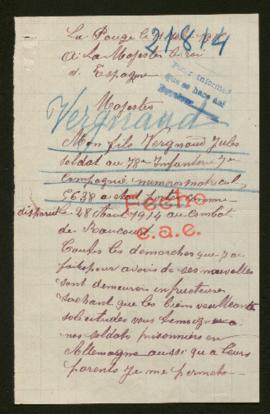 La Pouge le
21814
A Sa Majesté le roi
d'Espagne
Majesté
Vergnaud
Mon fils Vergnaud Jules
soldat au 78e Infanterie 7e
Compagnie numero matricul
5638 a été porté comme
disparu le 28 Aout 1914 au combat
de
Fecho
c.a.e.
Toutes les demarches que j'ai
faites pour avoir de ses nouvelles
sont demeurés infructueuses
sachant que les bienveillante
solicitudes vous temoignez a
nos soldats prisonniers en
Allemagne aussi qu'a leurs
parents je me permets